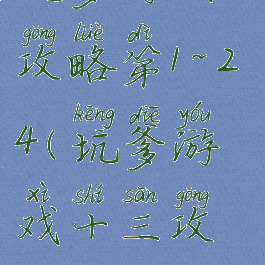 gōng lüè dì
攻略第1~2
kēng diē yóu
4(坑爹游
xì shí sān gōng
戏十三攻